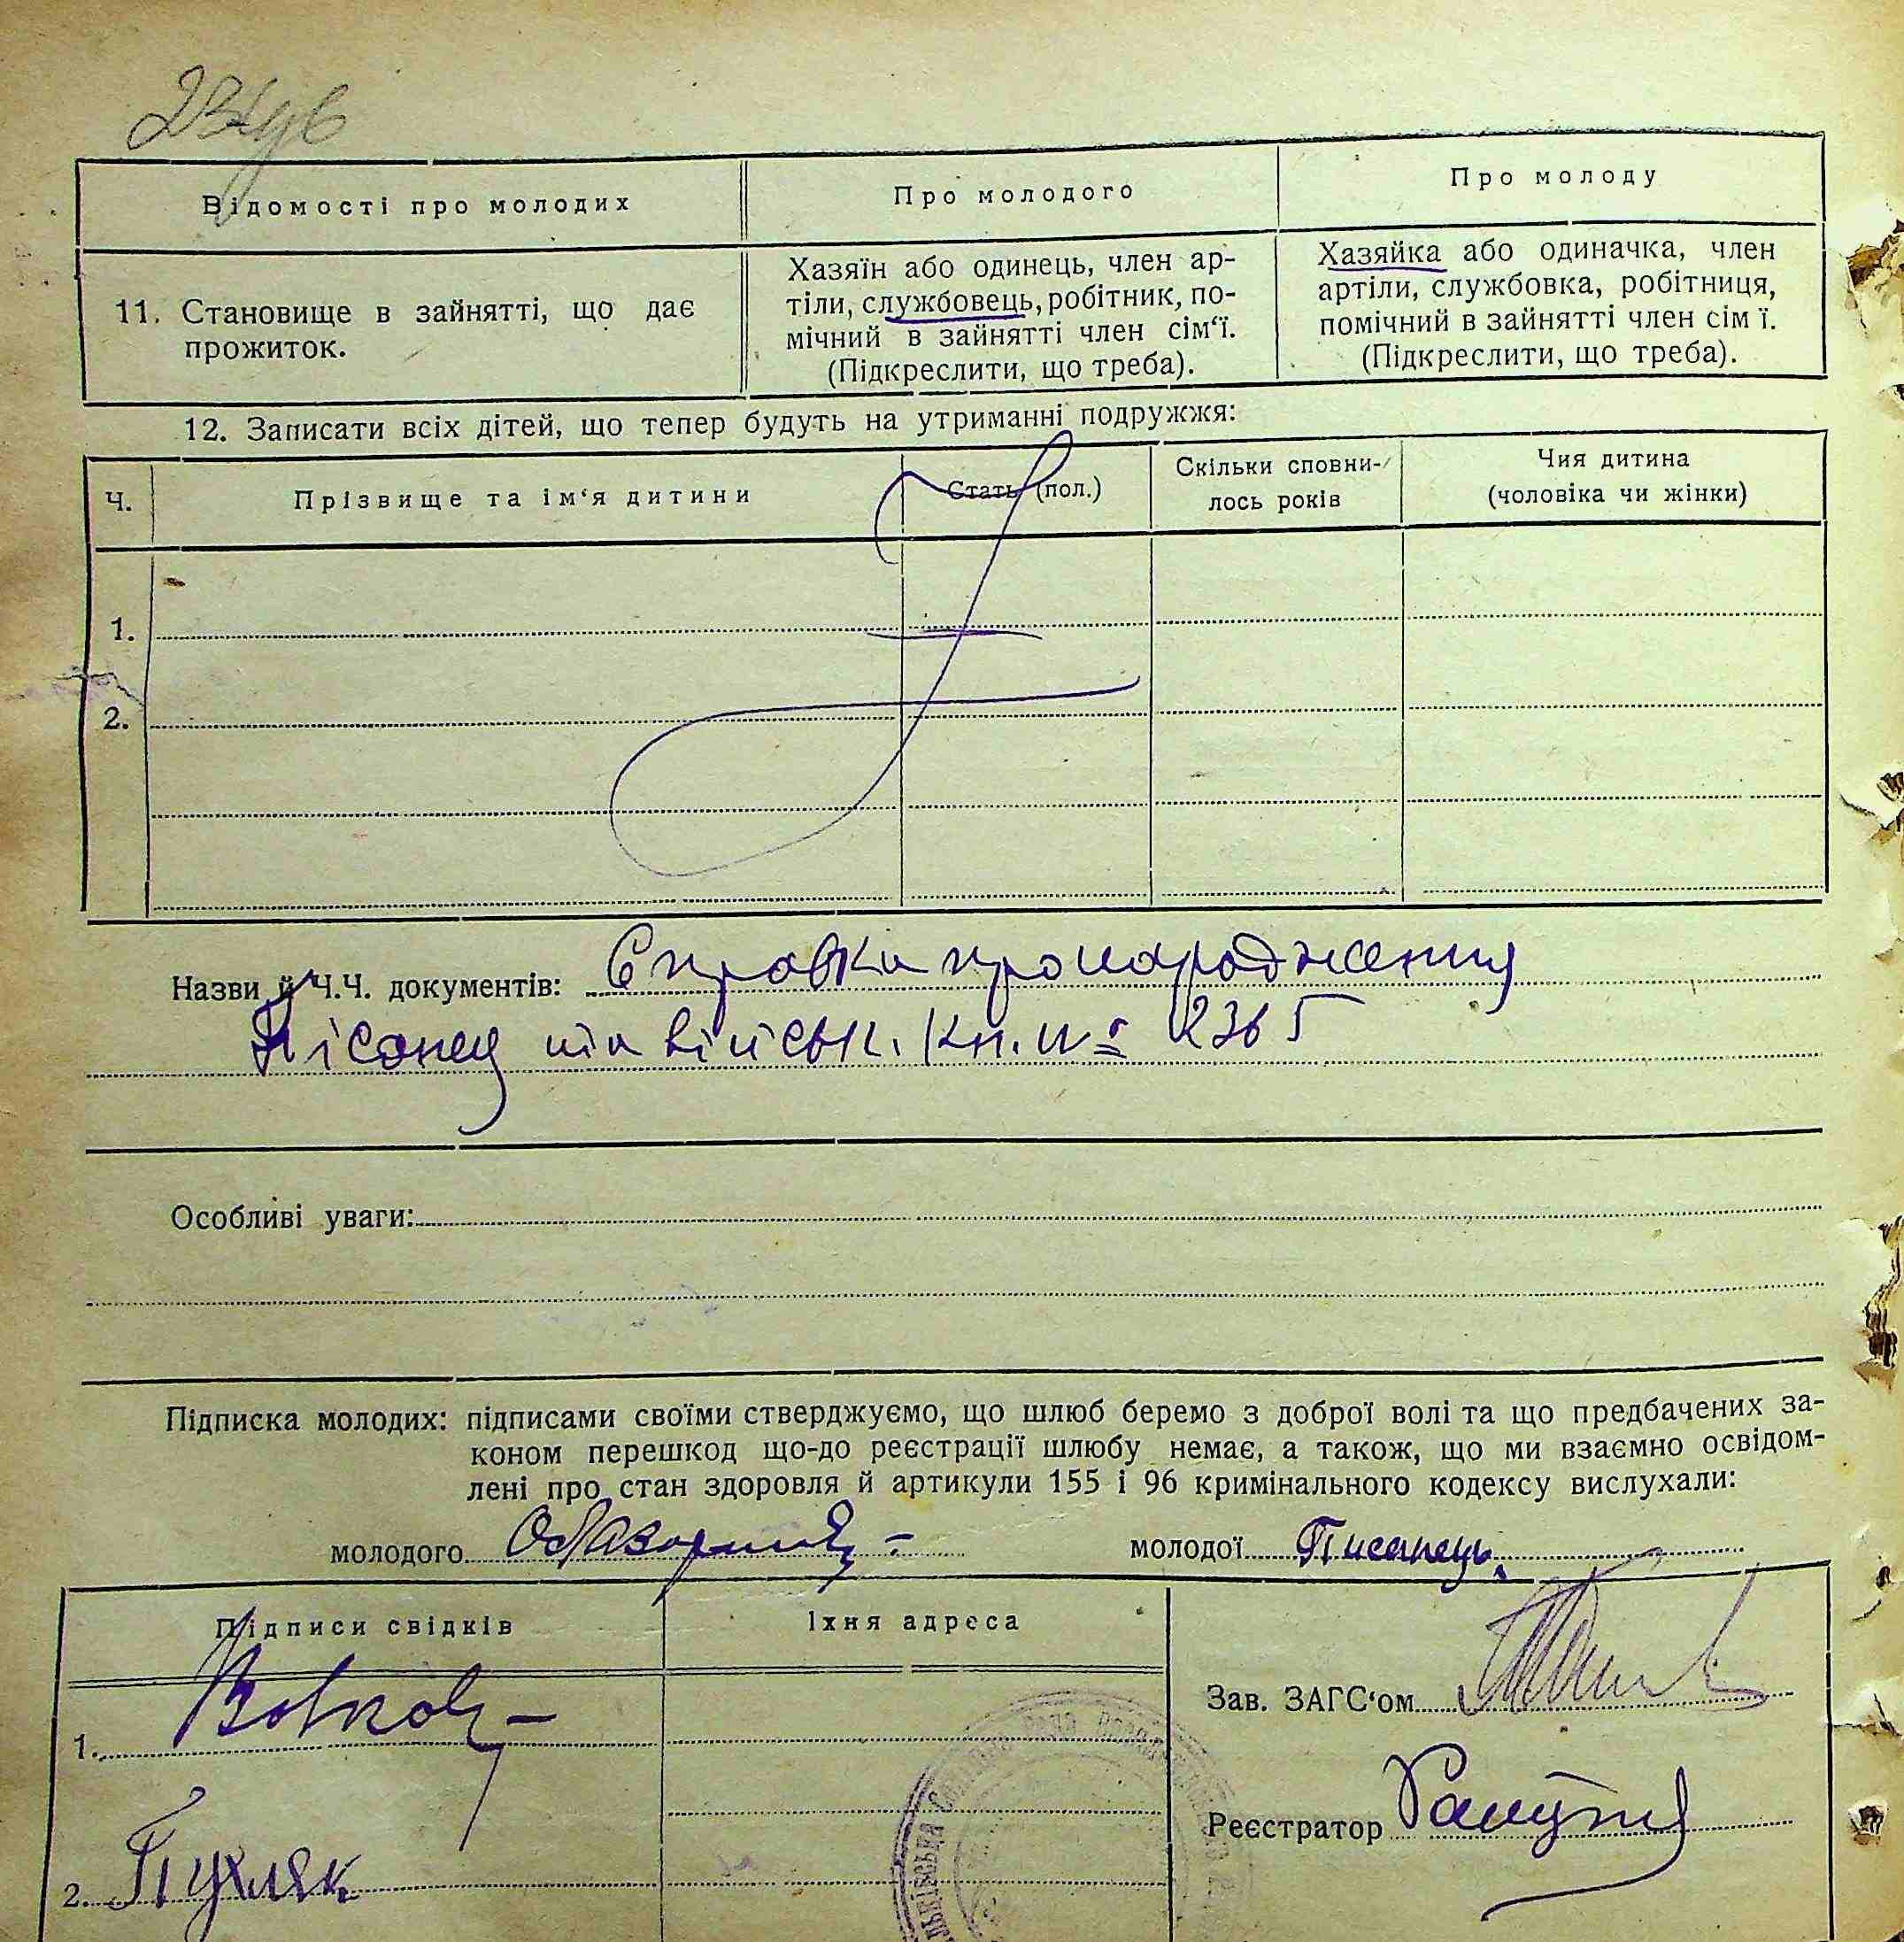 Відомості про молодих
Про молодого
Про молоду
11. Становище в зайнятті, що дає
прожиток.
Хазяїн або одинець, член ар-
тіли, службовець, робітник, по-
мічний в зайнятті член сім‘ї.
(Підкреслити, що треба).
Хазяйка або одиначка, член
артіли, службовка, робітниця,
помічний в зайнятті член сім ї.
(Підкреслити, що треба).
12. Записати всіх дітей, що тепер будуть на утриманні подружжя:
Ч.
Прізвище та ім‘я дитини
Стать (пол.)
Скільки сповни-
лось років
Чия дитина
(чоловіка чи жінки)
1.
2.
Назви й Ч.Ч. документів: Справка про народження
Пісанец та військ. кн. № 2365
Особливі уваги:
Підписка молодих: підписами своїми стверджуємо, що шлюб беремо з доброї волі та що предбачених за-
коном перешкод що-до реєстрації шлюбу немає, а також, що ми взаємно освідом-
лені про стан здоровля й артикули 155 і 96 кримінального кодексу вислухали:
молодого
молодої Писанець
Підписи свідків
Їхня адреса
Зав. ЗАГС‘ом
1.
Реєстратор
2. Пухляк